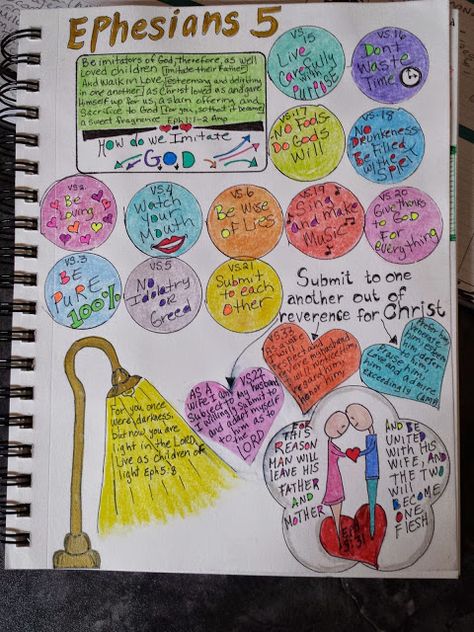 EPHESIANS 5
Be imitators of God, Therefore, as well
Loved children [imitate their Father]
And walk in Love [esteeming and delighting
in one another] as Christ loved us and gave
Himself up for us, a slain offering and
Sacrifice to God [for you, so that it became
a sweet fragrance. Eph 1:1-2 Amp
How do we Imitate
GOD
VS. 15
Live
Carefully
with
PURPOSE
VS. 16
Don't
Waste
Time
VS. 17
No Fools
Do God's
Will
VS. 18
No
Drunkeness
Be Filled
w/ the
SPIRIT
VS 2.
Be
Loving
VS. 4
WATCH
YOUR
MOUTH
VS. 6
Be Wise
of Lies
VS. 19
Sing
and make
MUSIC
VS. 20
Give thanks
to GOD
For
everything
VS. 3
BE
PURE
100%
VS. 5
No
Idolatry
or
Greed
VS. 21
Submit
to each
other
Submit to one
another out of
reverence for Christ
VS. 22
AS A
Wife I am
Subject to My husband
I Willingly Submit to
and adapt myself
to him as to
the
LORD
VS. 33
As a wife
I will
respect my husband
honor him
For you once
were darkness,
but now you are
light in the LORD.
Live as children of
light Eph 5:8
FOR
THIS
REASON
MAN WILL
LEAVE HIS
FATHER
AND
MOTHER
AND BE
UNITED
WITH HIS
WIFE, AND
THE TWO
WILL
BECOME
ONE
FLESH
EPH
5:31